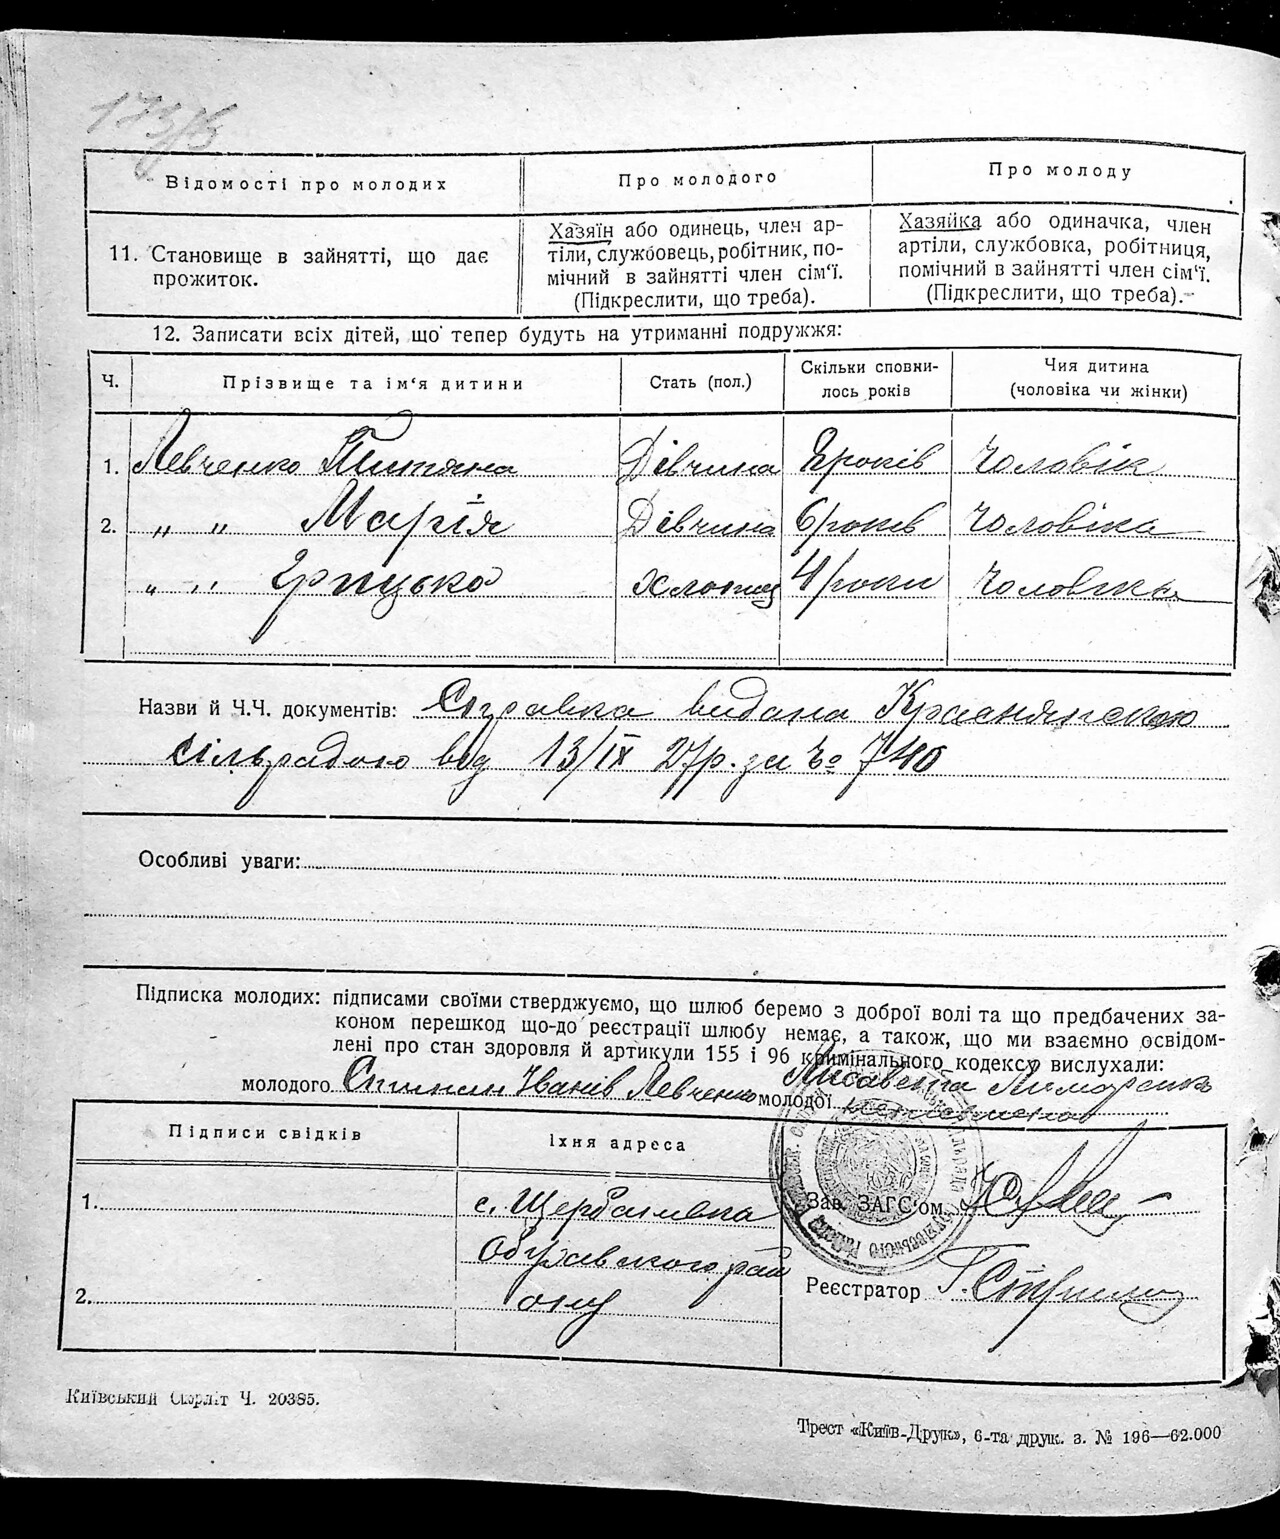 173/5
Відомості про молодих
Про молодого
Про молоду
11. Становище в зайнятті, що дає прожиток.
Хазяїн або одинець, член ар-
тіли, службовець, робітник, по-
мічний в зайнятті член сім'ї.
(Підкреслити, що треба).
Хазяйка або одиначка, член
артіли, службовка, робітниця,
помічний в зайнятті член сім'ї.
(Підкреслити, що треба).
12. Записати всіх дітей, що тепер будуть на утриманні подружжя:
Ч. Прізвище та ім'я дитини Стать (пол.) Скільки сповни-лось років Чия дитина (чоловіка чи жінки)
1. Левченко Титяна Дівчина 8 років Чоловік
2. " " Марія Дівчина 6/років Чоловіка
" " Грицько Хлопец 4/роки Чоловіка
Назви й Ч.Ч. документів: Справка видана Краснянскою
сільрадою від 13/ІХ 27р. за № 740
Особливі уваги:
Підписка молодих: підписами своїми стверджуємо, що шлюб беремо з доброї волі та що предбачених за-
коном перешкод що-до реєстрації шлюбу немає, а також, що ми взаємно освідом-
лені про стан здоровля й артикули 155 і 96 кримінального кодексу вислухали:
молодого Стипан Іванів Левченко молодої Лисавета Лимаренко
неписмена
Підписи свідків
Їхня адреса
1. с. Щербанівка
Обухавского рай
2. ону
Зав. ЗАГС'ом
Реєстратор
Київський Окрліт Ч. 20385.
Трест «Київ-Друк», 6-та друк. з. № 196—62.000